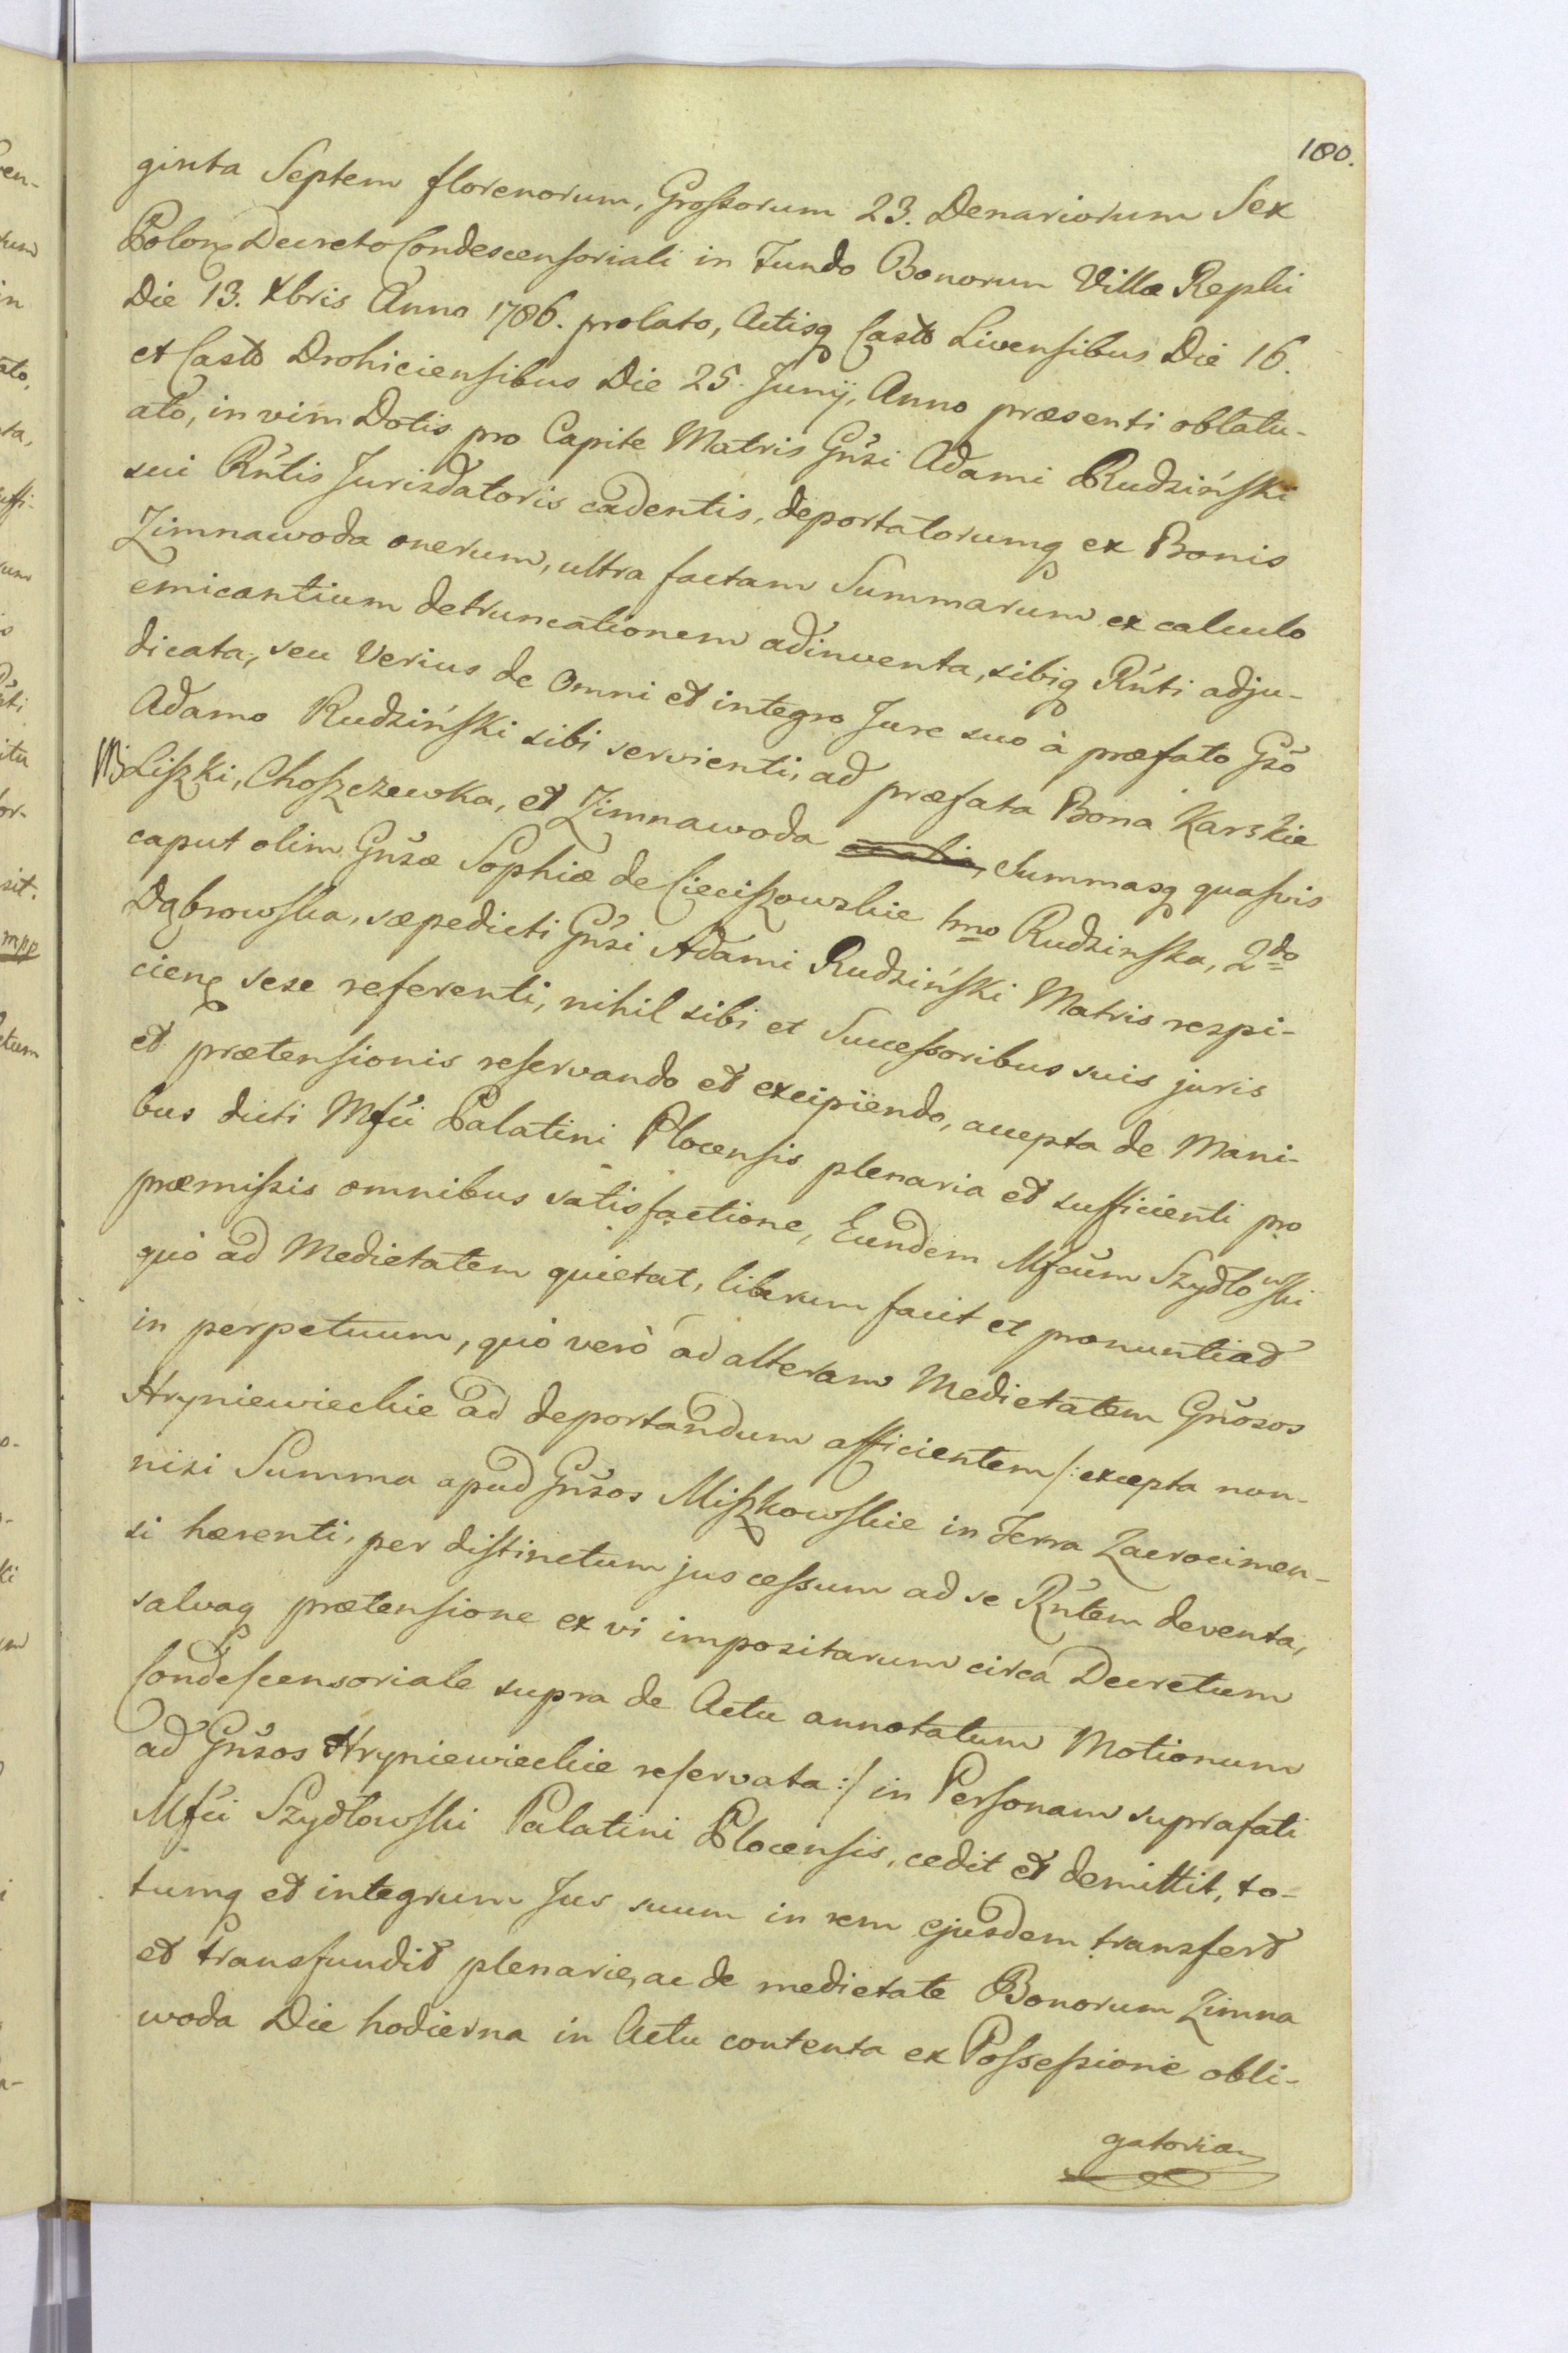 180.
ginta Septem florenorum, Grossorum 23. Denariorum Sex
Polon Decreto Condescensoriali in Fundo Bonorum Villæ Repki
Die 13. Xbris Anno 1786. prolato, Actisq Castr Livensibus Die 16.
et Castr Drohiciensibus Die 25. Junij, Anno præsenti oblatu-
ato, in vim Dotis pro Capite Matris Gnsi Adami Rudziński
sui Rntis Jurisdatoris cadentis, deportatorumq ex Bonis
Zimnawoda onerum, ultra factam Summarum ex calculo
emicantium detruncationem adinventa, sibiq Rnti adju-
dicata, seu Verius de Omni et integro Jure suo à præfato Gso
Adamo Rudziński sibi servienti, ad præfata Bona Karskie
Liszki, Choszczewka, et Zimnawoda Summasq quasvis
caput olim Gnsæ Sophiæ de Cieciszowskie 1mo Rudzinska, 2do
Dąbrowska, sæpedicti Gnsi Adami Rudziński Matris respi-
cien sese referenti, nihil sibi et Successoribus suis juris
et prætensionis reservando et excipiendo, accepta de Mani-
bus dicti Mfci Palatini Plocensis plenaria et sufficienti pro
præmissis omnibus satisfactione, Eundem Mfcum Szydłowski
quò ad Medietatem quietat, liberum facit et pronuntiat
in perpetuum, quò verò ad alteram Medietatem Gnosos
Hryniewieckie ad deportandum afficientem /: excepta non-
nisi Summa apud Gnsos Miszkowskie in Terra Zacrocimen-
si hærenti, per distinctum jus cessum ad se Rntem deventa,
salvaq prætensione ex vi impositarum circa Decretum
Condescensoriale supra de Actu annotatum Motionum
ad Gnsos Hryniewieckie reservata :/ in Personam suprafati
Mfci Szydłowski Palatini Plocensis, cedit et demittit, to-
tumq et integrum Jus suum in rem ejusdem transfert
et transfundit plenarie, ac de medietate Bonorum Zimna
woda Die hodierna in Actu contenta ex Possessione obli-
gatoria